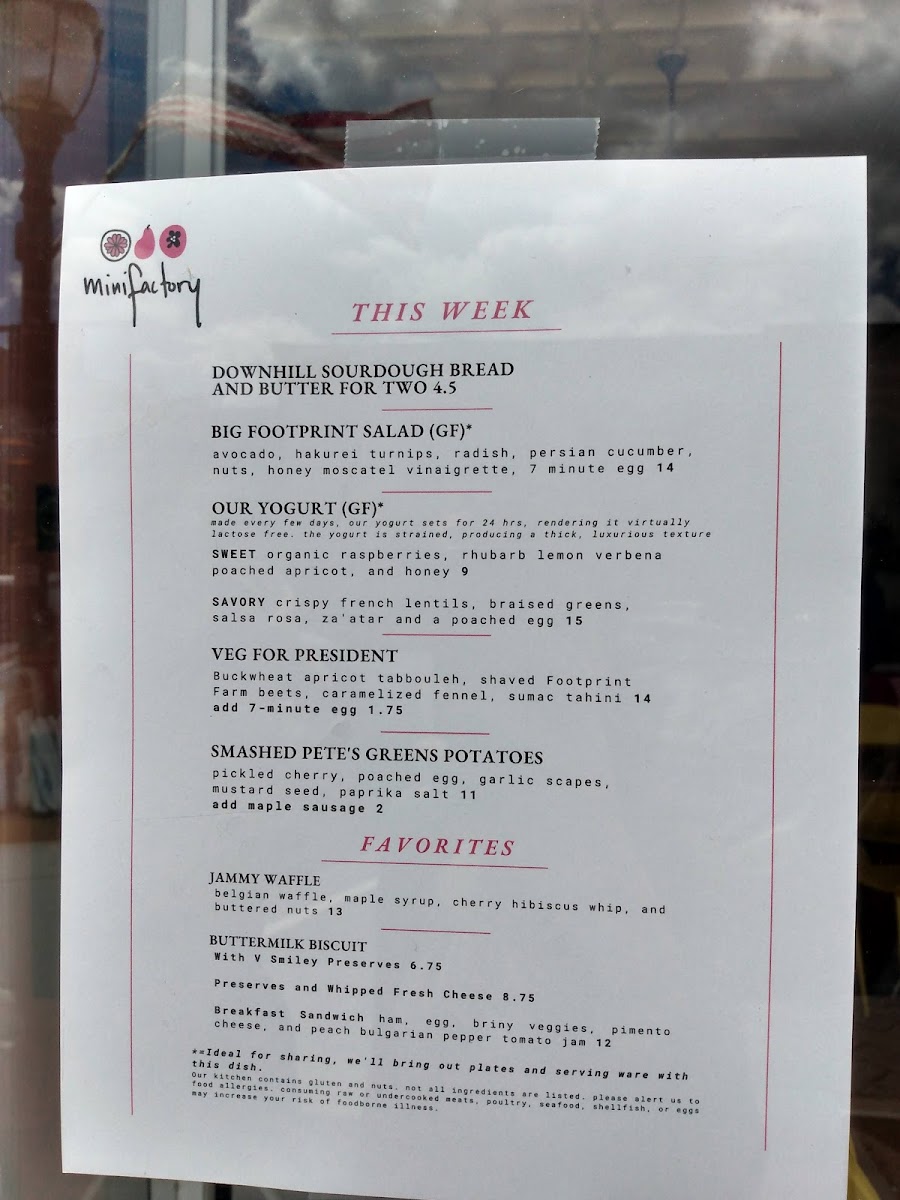 minifactory
THIS WEEK
DOWNHILL SOURDOUGH BREAD
AND BUTTER FOR TWO 4.5
BIG FOOTPRINT SALAD (GF)*
avocado, hakurei turnips, radish, persian cucumber,
nuts, honey moscatel vinaigrette, 7 minute egg 14
OUR YOGURT (GF)*
made every few days, our yogurt sets for 24 hrs, rendering it virtually
lactose free. the yogurt is strained, producing a thick, luxurious texture
SWEET organic raspberries, rhubarb lemon verbena
poached apricot, and honey 9
SAVORY crispy french lentils, braised greens,
salsa rosa, za'atar and a poached egg 15
VEG FOR PRESIDENT
Buckwheat apricot tabbouleh, shaved Footprint
Farm beets, caramelized fennel, sumac tahini 14
add 7-minute egg 1.75
SMASHED PETE'S GREENS POTATOES
pickled cherry, poached egg, garlic scapes,
mustard seed, paprika salt 11
add maple sausage 2
FAVORITES
JAMMY WAFFLE
belgian waffle, maple syrup, cherry hibiscus whip, and
buttered nuts 13
BUTTERMILK BISCUIT
With V Smiley Preserves 6.75
Preserves and Whipped Fresh Cheese 8.75
Breakfast Sandwich ham, egg, briny veggies, pimento
cheese, and peach bulgarian pepper tomato jam 12
*=Ideal for sharing, we'll bring out plates and serving ware with
this dish.
Our kitchen contains gluten and nuts. not all ingredients are listed. please alert us to
food allergies. consuming raw or undercooked meats, poultry, seafood, shellfish, or eggs
may increase your risk of foodborne illness.